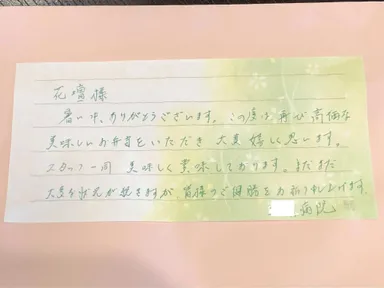 花壇様
暑い中、ありがとうございます。この度は再び高価な
美味しいお弁当をいただき大変嬉しく思います。
スタッフ一同 美味しく賞味しております。まだまだ
大変な状況が続きますが、皆様のご健勝をお祈り申し上げます。
病院